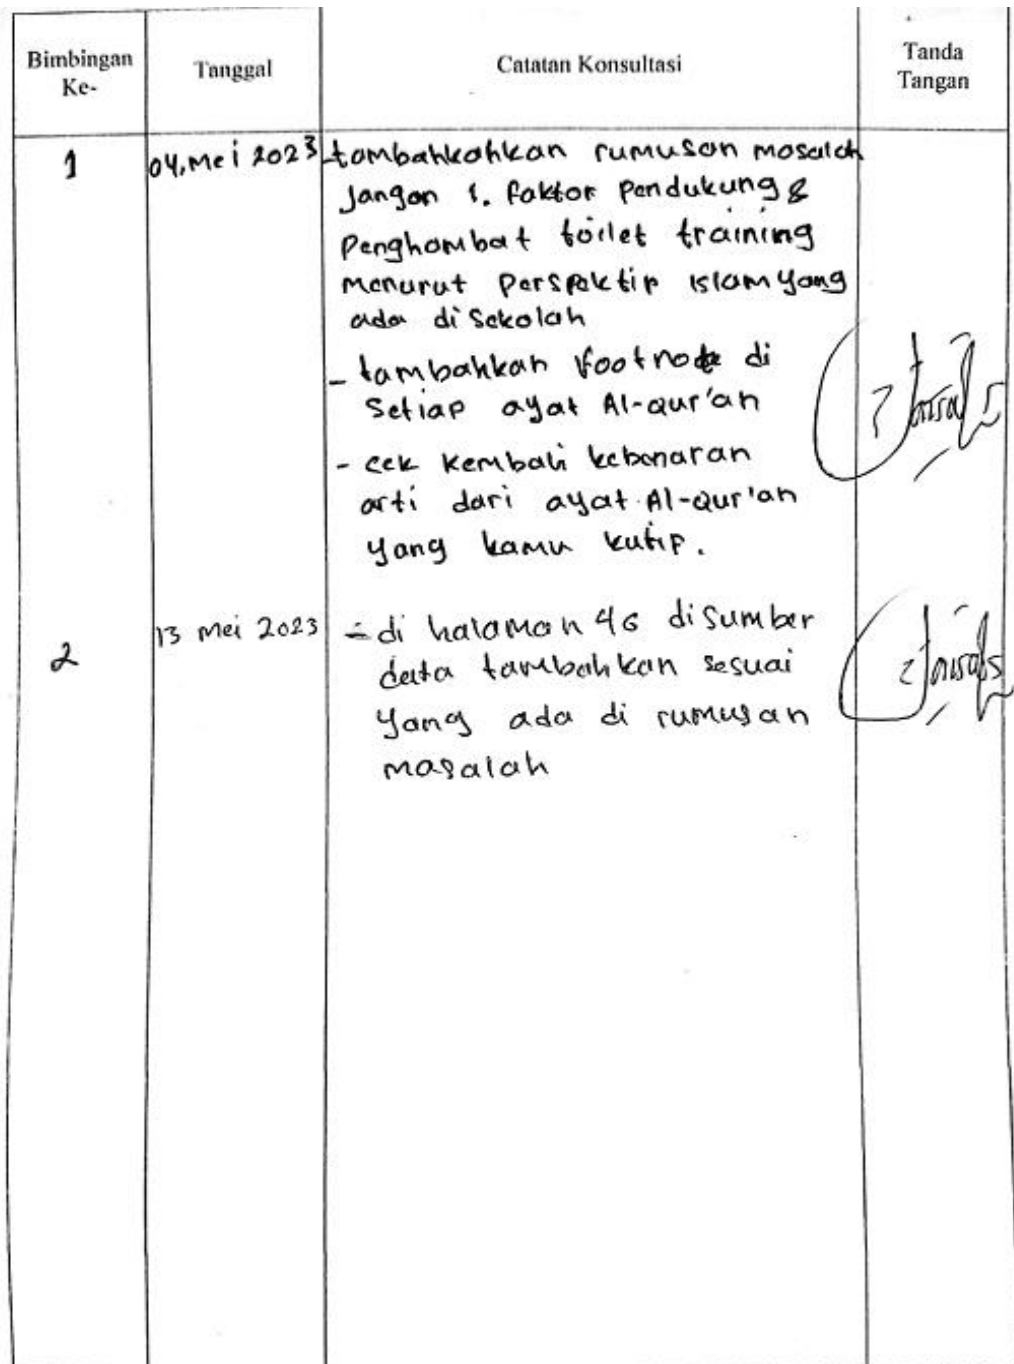 Bimbingan Ke-
Tanggal
Catatan Konsultasi
Tanda Tangan
1
04, Mei 2023
tambahkahkan rumusan masalah
Jangan 1. faktor pendukung &
Penghambat toilet training
menurut perspektif islam yang
ada di Sekolah
- tambahkan Footnote di
Setiap ayat Al-qur'an
- cek kembali kebenaran
arti dari ayat Al-Qur'an
yang kamu kutip.
2
13 Mei 2023
- di halaman 46 di Sumber
data tambahkan sesuai
yang ada di rumusan
masalah